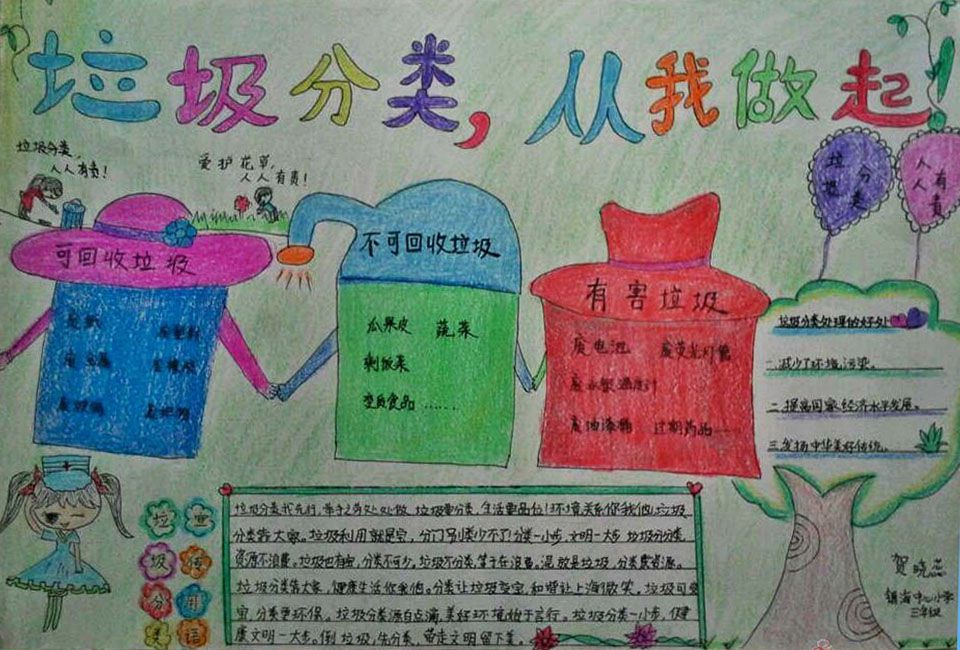 垃圾分类,从我做起
垃圾分类,
人人有责!
爱护花草,
人人有责!
垃圾
分类
人人
有责
可回收垃圾
不可回收垃圾
有害垃圾
瓜果皮 蔬菜
剩饭菜
变质食品……
废电池 废荧光灯管
废水银温度计
废油漆桶 过期药品……
垃圾分类处理的好处
一.减少了环境污染。
二.提高国家经济水平发展。
三.发扬中华美好传统。
垃圾分类
宣传用语
垃圾分类我先行,举手之劳处处做,垃圾要分类,生活要品位!环境关系你我他,垃圾
分类靠大家。垃圾利用就是宝,分门别类少不了!分类一小步,文明一大步,垃圾分分类,
资源不浪费。垃圾也有家,分类不可少。垃圾不分类,等于在浪费,混放是垃圾,分类变资源。
垃圾分类靠大家,健康生活你我他。分类让垃圾变宝,和谐让上海微笑。垃圾可变
宝,分类更环保。垃圾分类源自点滴,美好环境始于言行。垃圾分类一小步,健
康文明一大步。倒垃圾,先分类,带走文明留下美。
贺晓
镇海中心小学
三年级